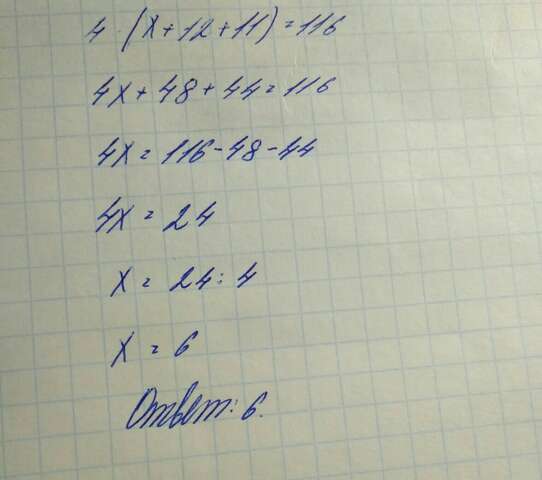 4·(x+12+11)=116
4x+48+44=116
4x=116-48-44
4x=24
x=24:4
x=6
Ответ: 6.